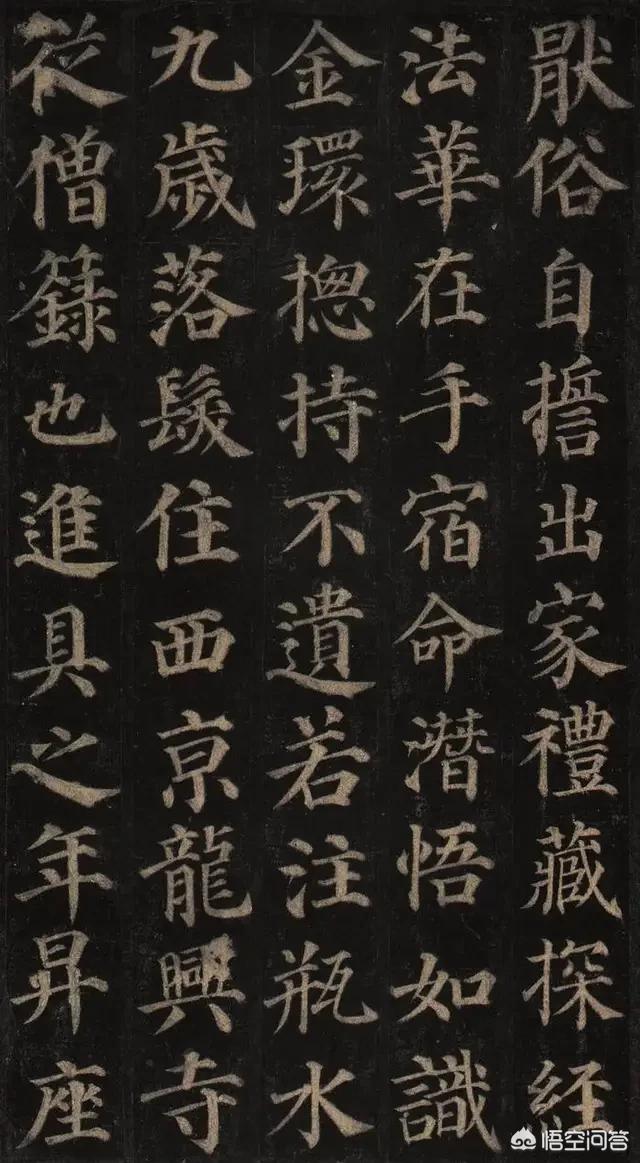 猒俗自誓出家禮藏探經
法華在手宿命潛悟如識
金環揔持不遺若注瓶水
九歲落髮住西京龍興寺
從僧籙也進具之年昇座
悟空问答